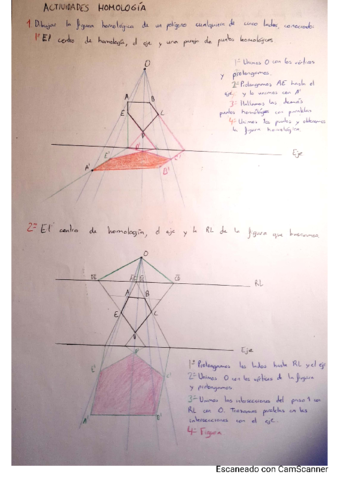 ACTIVIDADES HOMOLOGÍA
1. Dibujar la figura homológica de un polígono cualquiera de cinco lados, conociendo
1º El centro de homología, el eje y una pareja de puntos homológicos.
1º Unimos O con los vértices
y prolongamos.
2º Prolongamos AE hasta el
eje y lo unimos con A'
3º Hallamos los demás
puntos homólogos con paralelas
4º Unimos los puntos y obtenemos
la figura homológica
O
A B
E C
D
Eje
A'
B'
2º El centro de homología, el eje y la RL de la figura que buscamos.
O
RL
A B
E C
D
Eje
1º Prolongamos los lados hasta RL y el eje
2º Unimos O con los vértices de la figura
y prolongamos
3º Unimos las intersecciones del paso 1 en
RL con O. Trazamos paralelas en las
intersecciones con el eje.
4º Figura
Escaneado con CamScanner